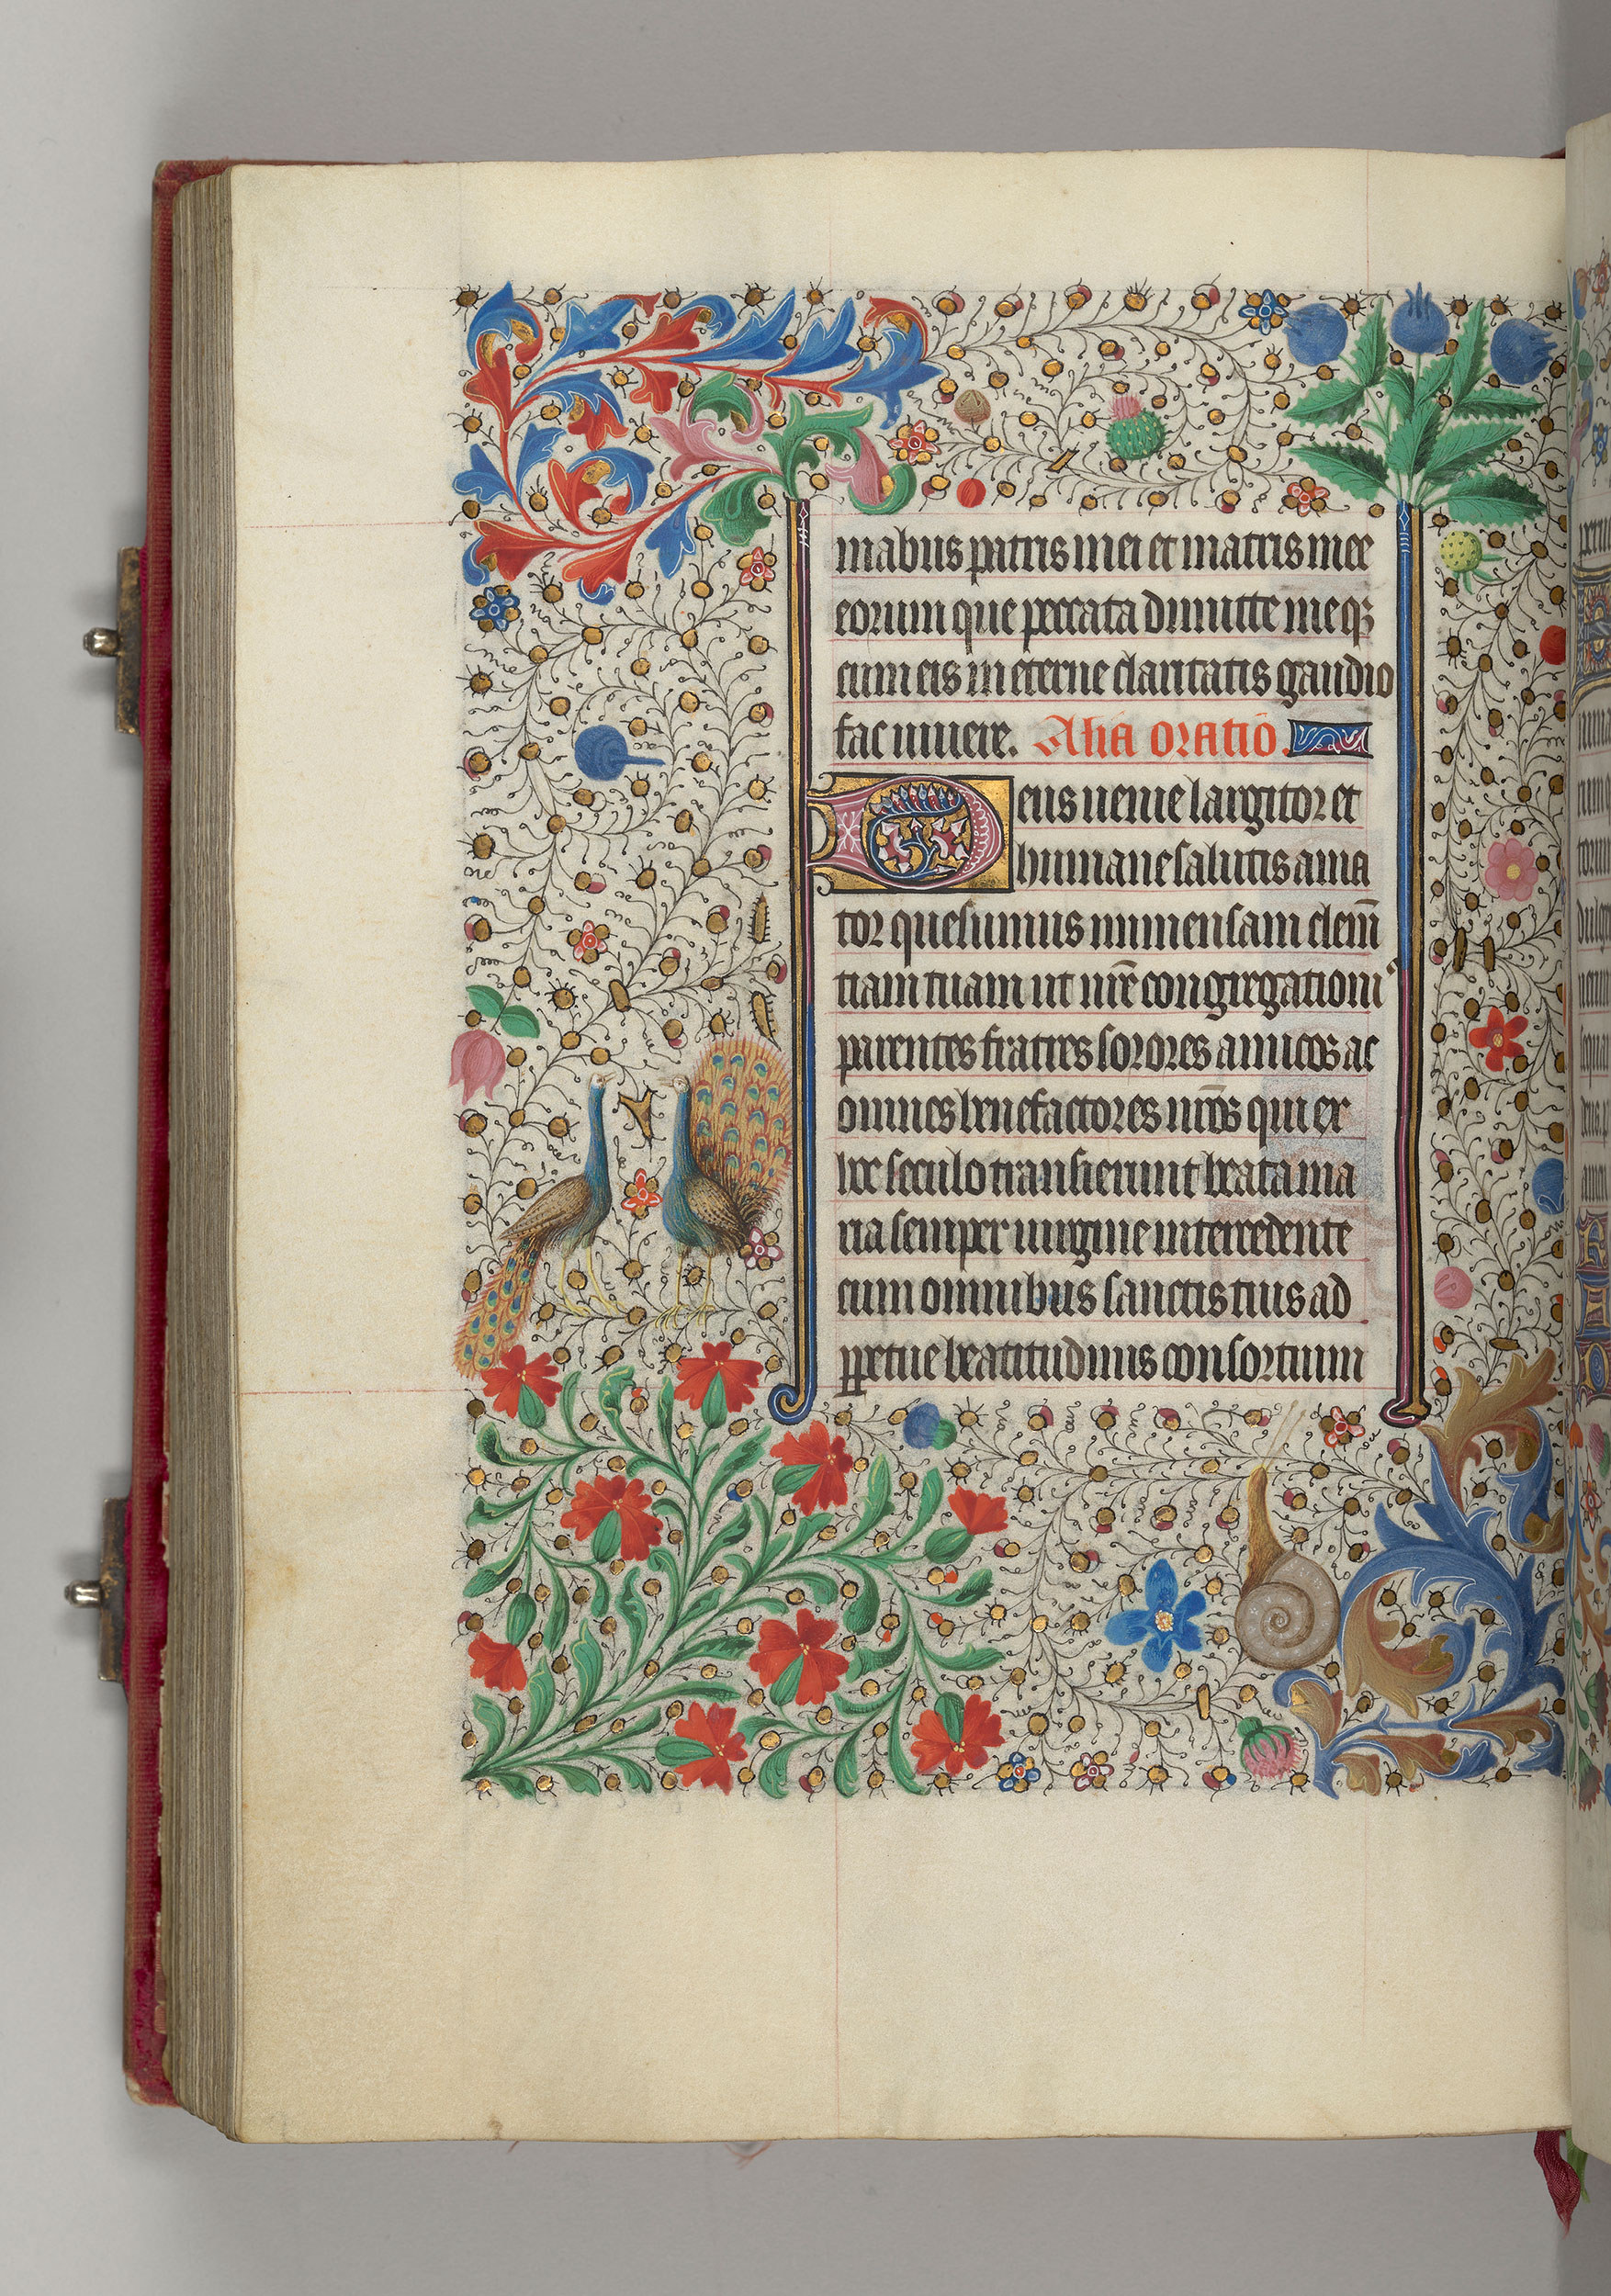 mabus patris mei et matris mee
eorum que peccata dimitte meqꝫ
cum eis in eterne claritatis gaudio
fac vivere. Alia oratio.
Deus venie largitor et
humane salutis ama
tor quesumus immensam clem̄
tiam tuam ut nr̄e congregationis
parentes fratres sorores amicos ac
omnes benefactores nr̄os qui ex
hoc seculo transierunt beata ma
ria semper virgine intercedente
cum omnibus sanctis tuis ad
ꝑpetue beatitudinis consortium